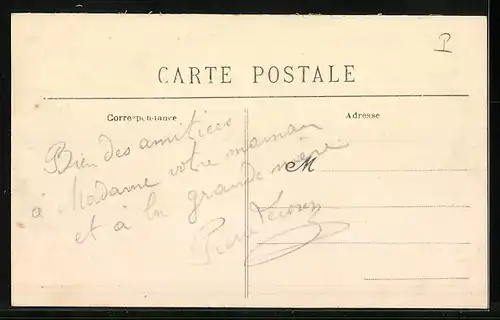 P
CARTE POSTALE
Correspondance
Adresse
Bien des amitiées
à Madame votre maman
et à la grande mère
Pierre
M